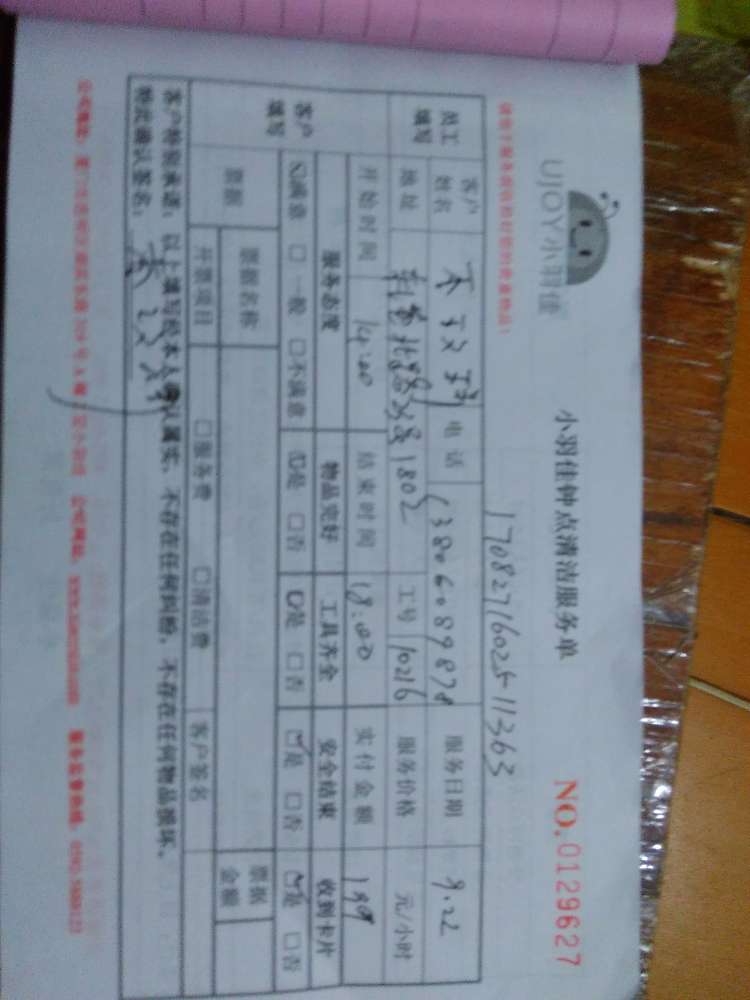 UJOY小羽佳
小羽佳钟点清洁服务单
NO.0129627
17082716025-11363
员工填写
客户姓名
电话 13806089878
服务日期 9.22
地址
1802
工号 10216
服务价格 元/小时
客户填写
开始时间 14:00
结束时间 18:00
实付金额 199
服务态度 物品完好 工具齐全 安全结束 收到卡片
☑满意 □一般 □不满意 ☑是 □否 ☑是 □否 ☑是 □否 ☑是 □否
票据
票据名称
票据金额
开票项目 □服务费 □清洁费 客户签名
客户特别承诺:以上填写经本人确认属实,不存在任何纠纷,不存在任何物品损坏。
特此确认签名: